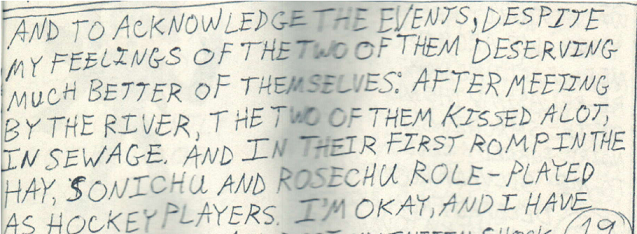 AND TO ACKNOWLEDGE THE EVENTS, DESPITE
MY FEELINGS OF THE TWO OF THEM DESERVING
MUCH BETTER OF THEMSELVES: AFTER MEETING
BY THE RIVER, THE TWO OF THEM KISSED ALOT,
IN SEWAGE. AND IN THEIR FIRST ROMP IN THE
HAY, SONICHU AND ROSECHU ROLE-PLAYED
AS HOCKEY PLAYERS. I'M OKAY, AND I HAVE
19